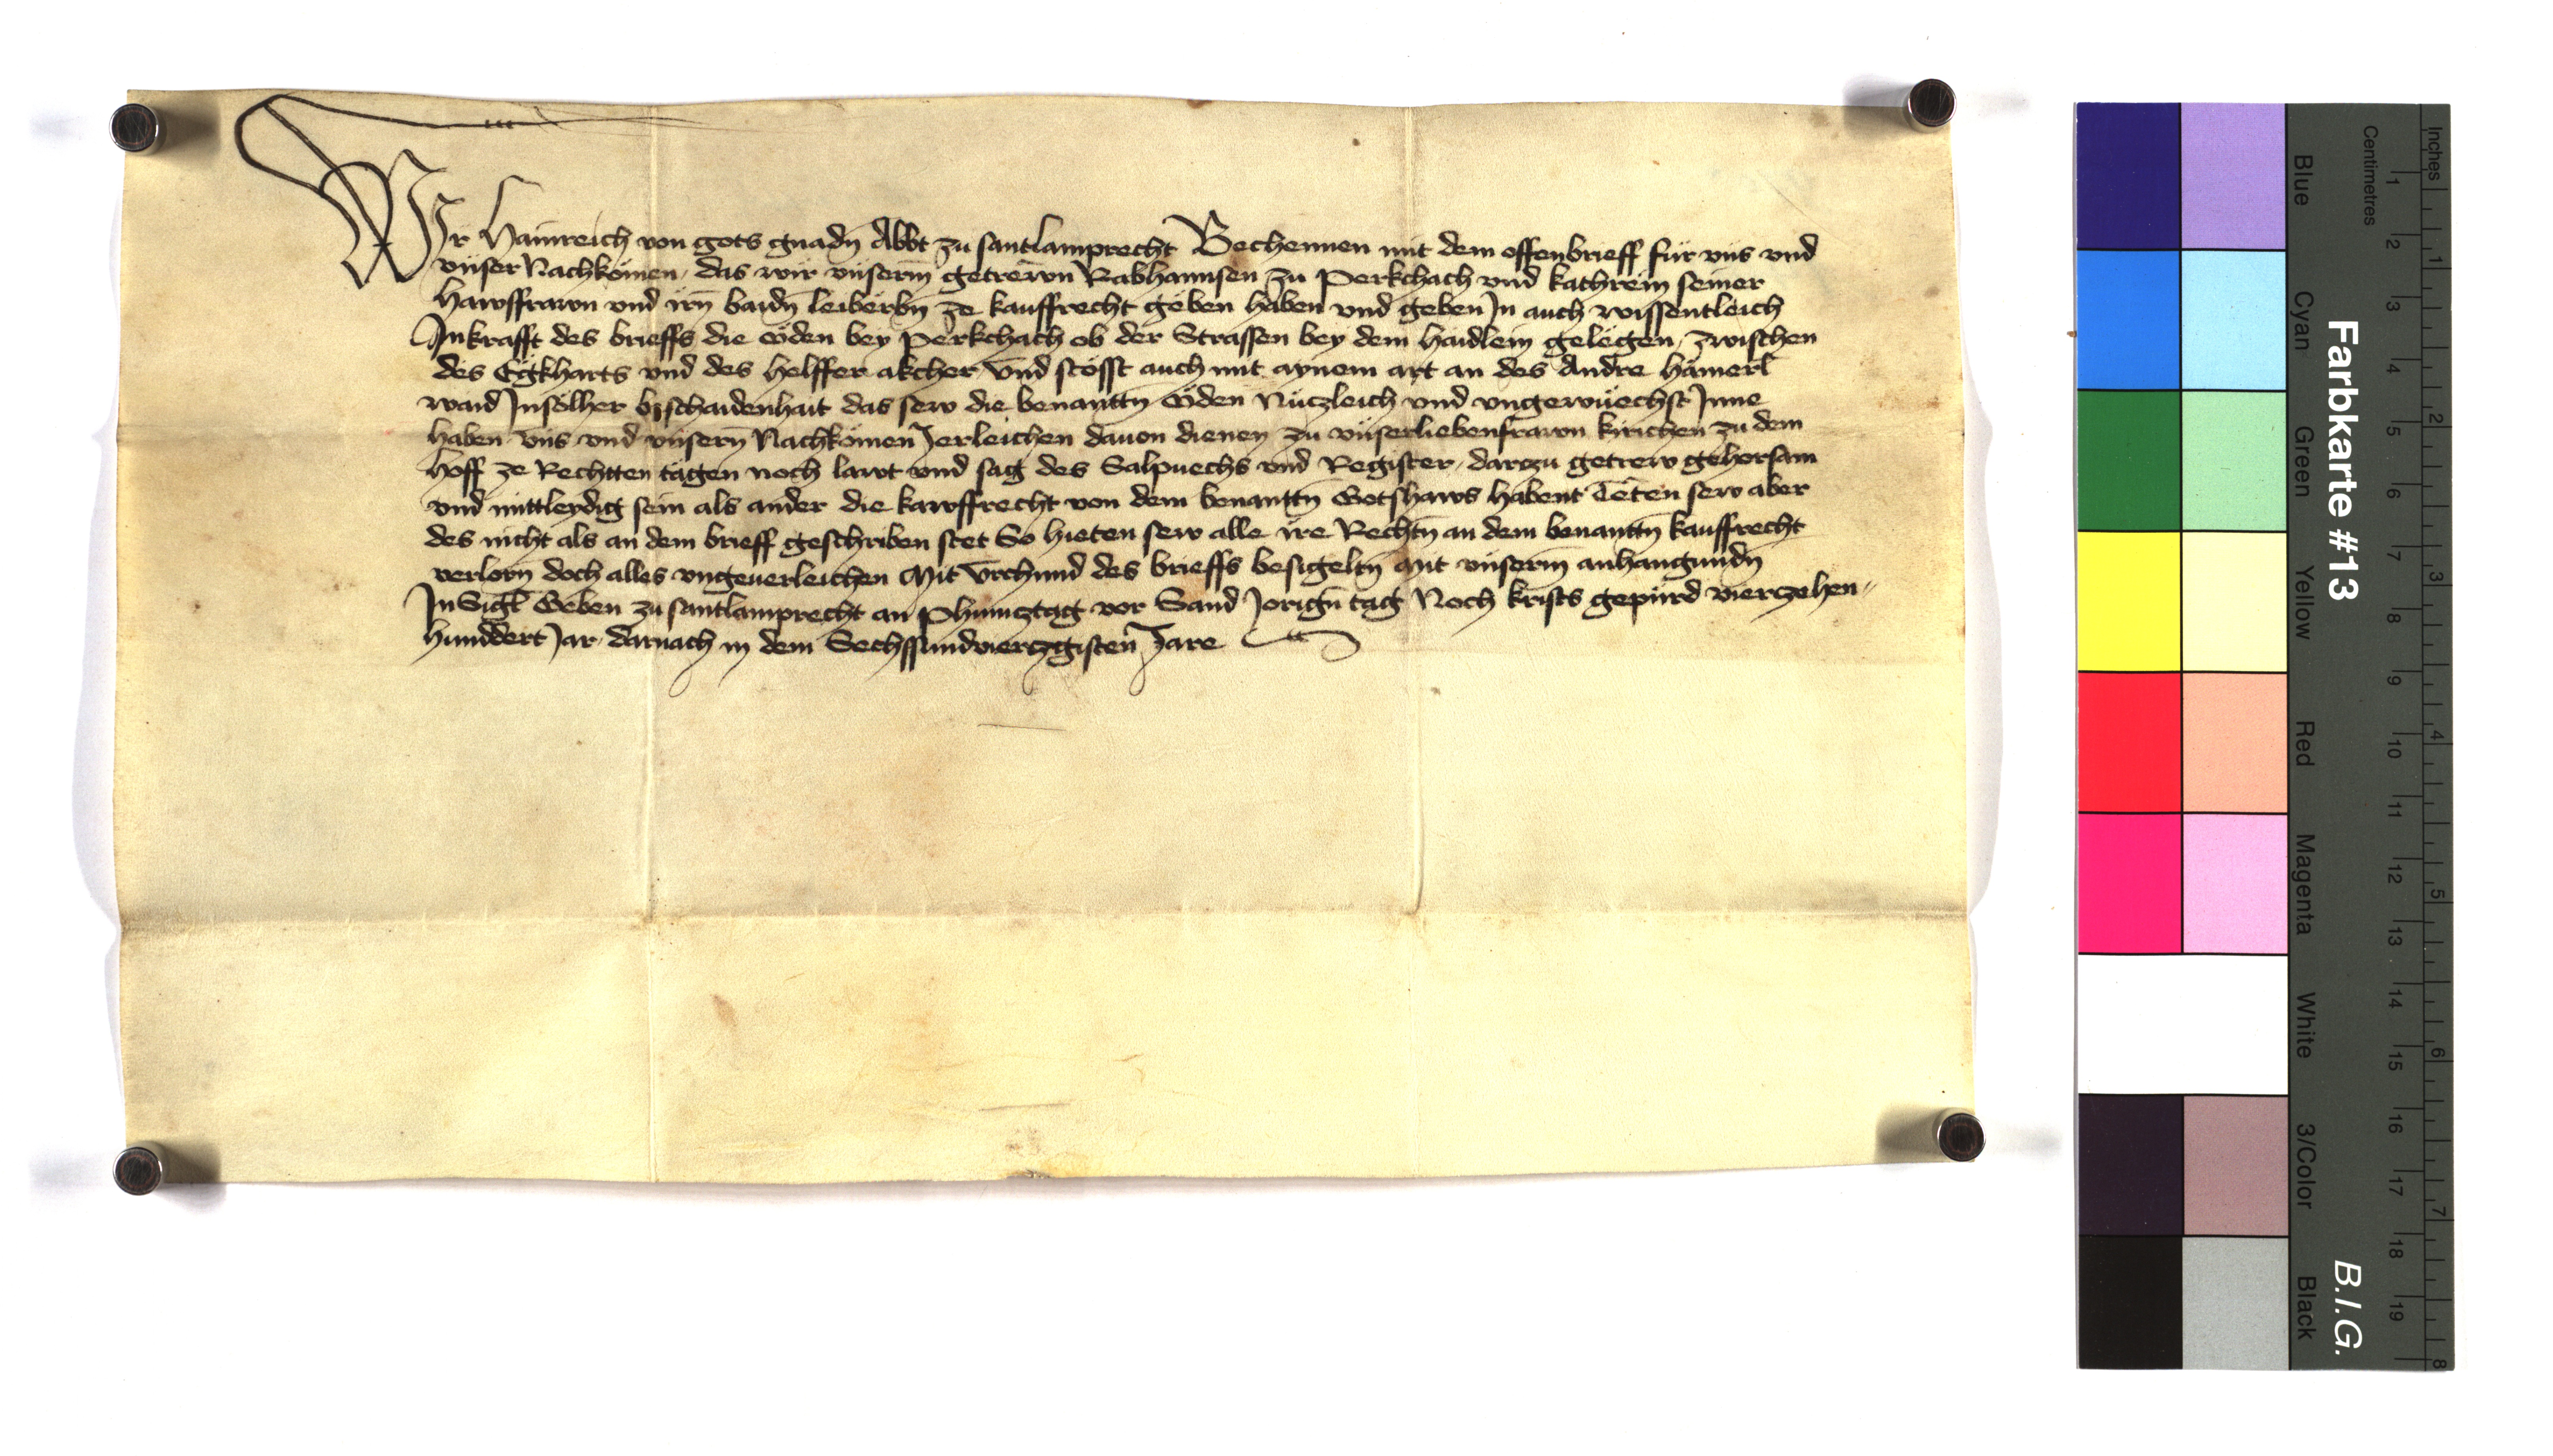 Wir Hainreich von gots gnadn Abbt zu santlamprecht Bechennen mit dem offenbrieff für vns und
vnser Nachkömen, das wir vnserm getrewn Rabhannsen zu Perkchach vnd kathrein seiner
hawsffrawn vnd irn baidn leiberbn ze kauffrecht geben haben vnd geben In auch wissentleich
In krafft des brieffs die öden bey Perkchach ob der Strassen bey dem haidlein gelegen, zwischen
des Egkharts vnd des helffer akcher Vnd stösst auch mit aynem art an des Andre hämerl
waid In sölher beschaidenhait das sew die benanttn öden Nüczleich vnd vngewüechst Inne
haben Vns vnd vnsern Nachkömen Jerleichen dauon dienen zu vnserliebenfrawn kirichen zu dem
hoff ze Rechtten tägen noch lawt vnd sag des Salpuechs vnd Register, darczu getrew gehorsam
vnd mittleydig sein als ander die kawffrecht von dem benanttn Gotshaws habent Teten sew aber
des nicht als an dem brieff geschriben stet So hieten sew alle ire Rechtn an dem benanttn kauffrecht
verlorn doch alles vngeuerleichen Mit Vrchund des brieffs besigeltn mit vnserm anhangundn
InSigl Geben zu santlamprecht an Phincztag vor Sand Jorign tag Noch krists gepürd vierczehen-
hunddert Jar darnach in dem Sechssundvierczgisten Jare
Farbkarte #13
B.I.G.
Inches
1
2
3
4
5
6
7
8
Centimetres
1
2
3
4
5
6
7
8
9
10
11
12
13
14
15
16
17
18
19
Blue
Cyan
Green
Yellow
Red
Magenta
White
3/Color
Black